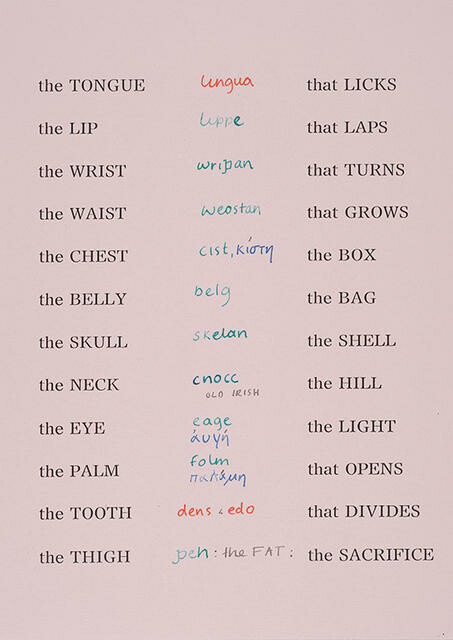 the TONGUE lingua that LICKS
the LIP lippe that LAPS
the WRIST wriþan that TURNS
the WAIST weostan that GROWS
the CHEST cist, κίστη the BOX
the BELLY belg the BAG
the SKULL skelan the SHELL
the NECK cnocc the HILL
OLD IRISH
the EYE eage the LIGHT
άυγή
the PALM folm that OPENS
παλάμη
the TOOTH dens & edo that DIVIDES
the THIGH peh : the FAT : the SACRIFICE